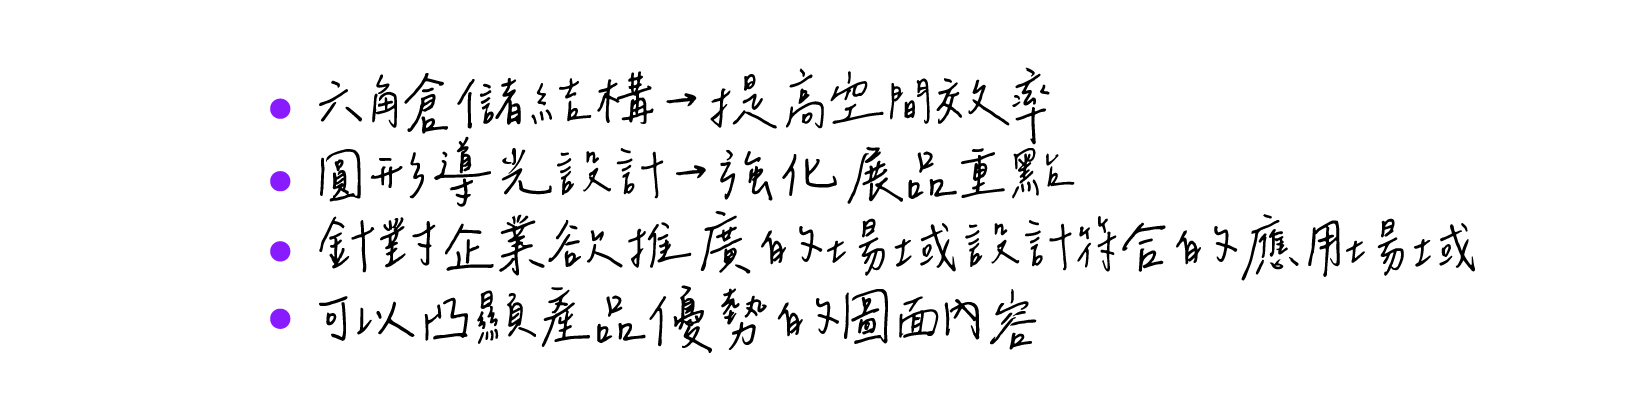 • 六角倉儲結構→提高空間效率
• 圓形導光設計→強化展品重點
• 針對企業欲推廣的場域設計符合的應用場域
• 可以凸顯產品優勢的圖面內容